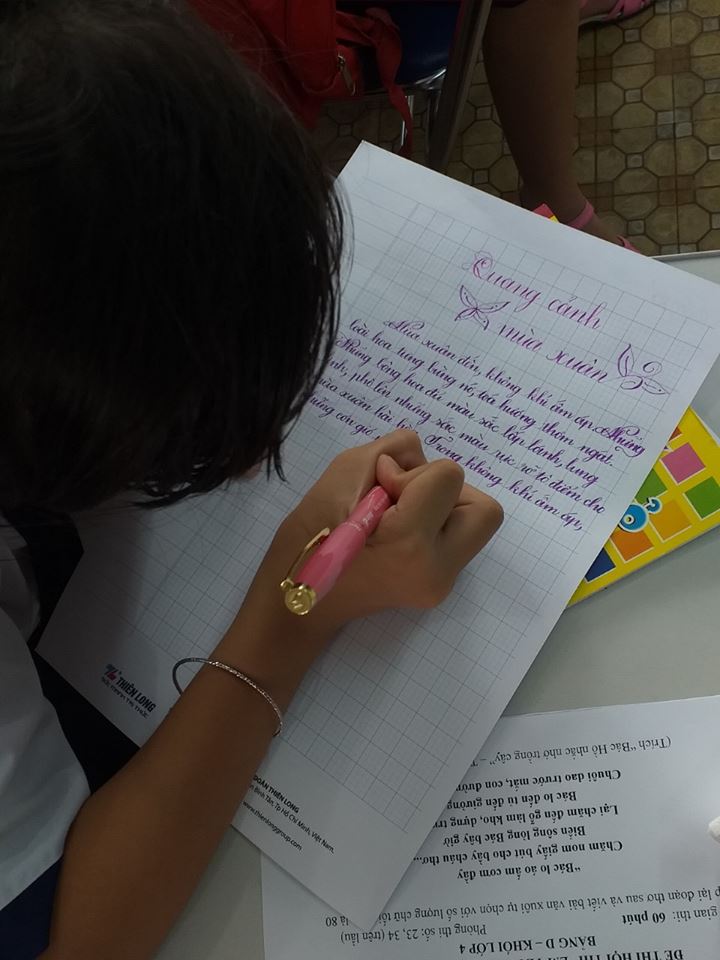 Quang cảnh
mùa xuân
Mùa xuân đến, không khí ấm áp. Những
loài hoa tưng bừng nở, toả hương thơm ngát.
Những bông hoa đủ màu sắc lấp lánh, lung
linh, phô lên những sắc màu rực rỡ tô điểm cho
mùa xuân hài Trong không khí ấm áp,
những cơn gió
THIÊN LONG
SỨC MẠNH TRI THỨC
ĐOÀN THIÊN LONG
Bình Tân, Tp Hồ Chí Minh, Việt Nam.
www.thienlonggroup.com
ĐỀ THI HỘI THI
BẢNG D – KHỐI LỚP 4
gian thi: 60 phút
Phòng thi số: 23, 34 (trên lầu)
lại đoạn thơ sau và viết bài văn xuôi tự chọn với số lượng chữ tối là 80
“Bác lo áo ấm cơm đầy
Chăm nom giấy bút cho bầy cháu thơ...
Biển sông lòng Bác bây giờ
Lại chăm đến gỗ làm kho, dựng
Bác lo đến tủ đến giường
Chuôi dao trước mắt, con
(Trích “Bác Hồ nhắc nhở trồng cây” –